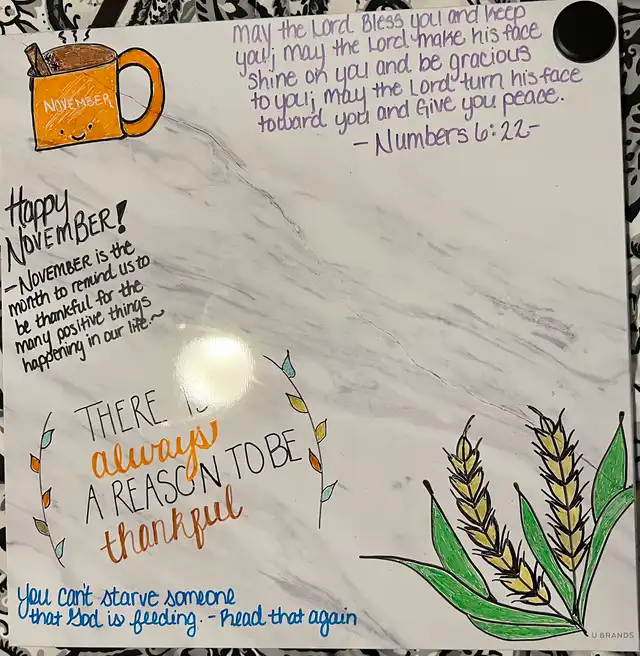 NOVEMBER
may the Lord Bless you and keep
you; may the Lord make his face
shine on you and be gracious
to you; may the Lord turn his face
toward you and Give you peace.
- Numbers 6:22-
Happy
NOVEMBER!
- NOVEMBER is the
month to remind us to
be thankful for the
many positive things
happening in our life.~
THERE IS
always
A REASON TO BE
thankful
You can't starve someone
that God is feeding. - Read that again
U BRANDS